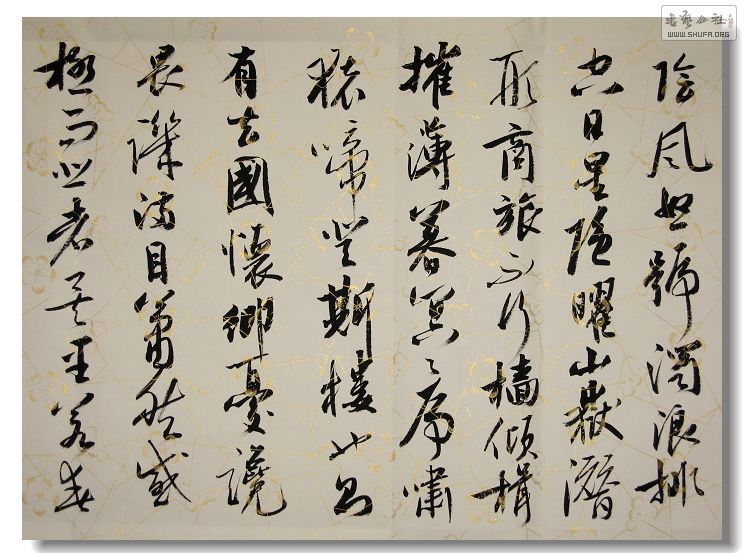 書藝公社
WWW.SHUFA.ORG
陰風怒號濁浪排
空日星隱曜山嶽潛
形商旅不行檣傾楫
摧薄暮冥々虎嘯
猿啼登斯樓也則
有去國懷鄉憂讒
畏譏滿目蕭然感
極而悲者矣至若春